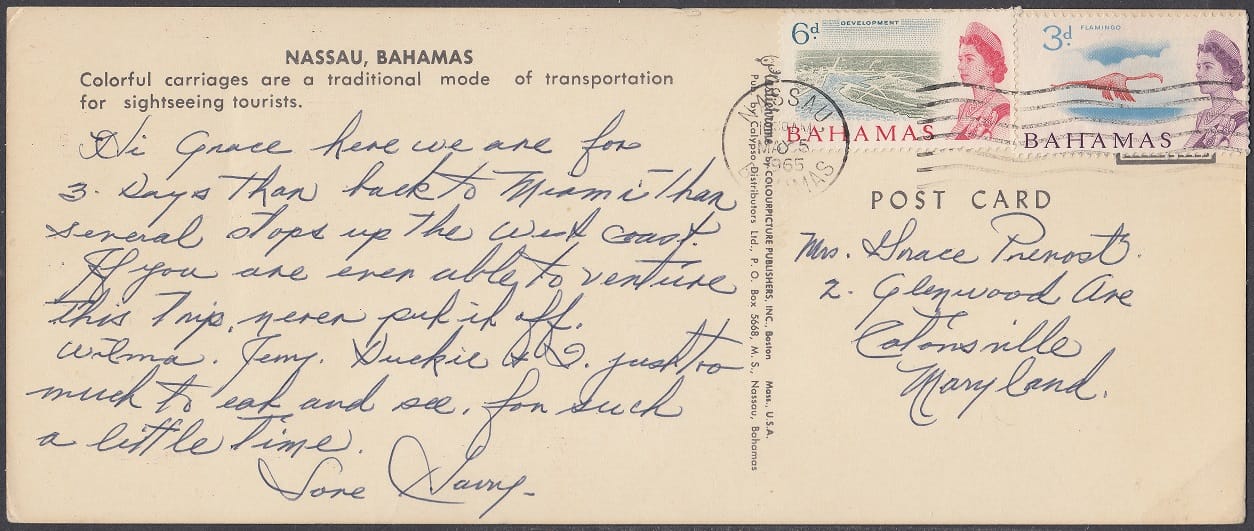 NASSAU, BAHAMAS
Colorful carriages are a traditional mode of transportation
for sightseeing tourists.
Hi Grace here we are for
3. Days than back to Miami than
several stops up the west coast.
If you are ever able to venture
this Trip, never put it off.
Wilma. Jerry. Duckie & I. just too
much to eat and see. for such
a little time.
Love Harry.
Plastichrome by COLOURPICTURE PUBLISHERS, INC., Boston Mass., U.S.A.
Pub. by Calypso Distributors Ltd., P. O. Box 5668, M. S., Nassau, Bahamas
6d
DEVELOPMENT
BAHAMAS
3d
FLAMINGO
BAHAMAS
NASSAU
1965
BAHAMAS
POST CARD
Mrs. Grace Prevost
2. Glenwood Ave
Catonsville
Maryland.